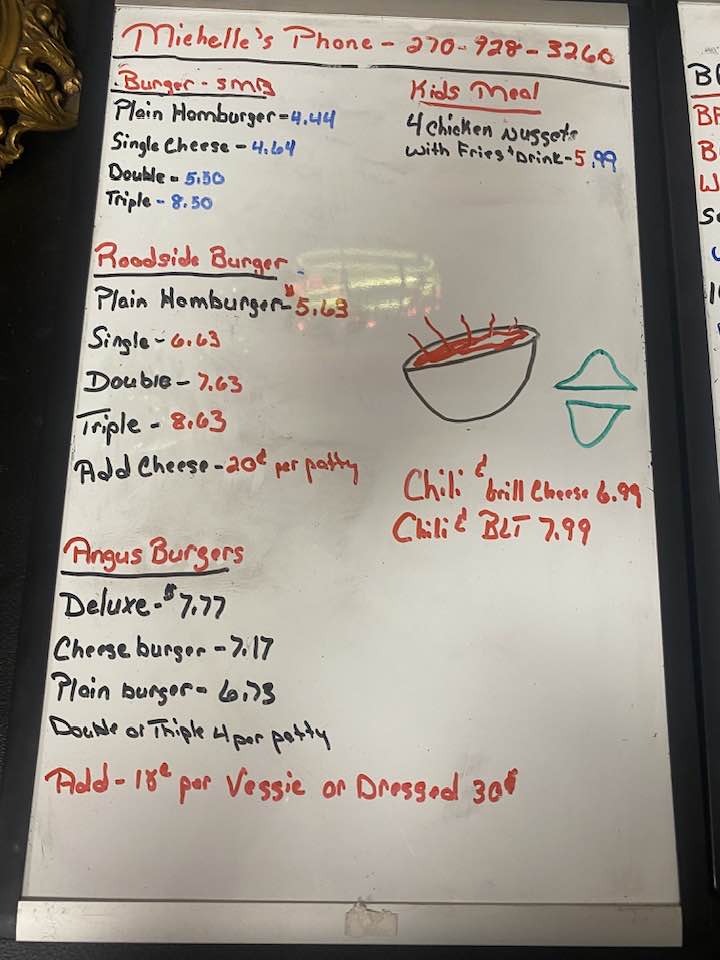 Michelle's Phone - 270-928-3260
Burger - SMB
Plain Hamburger - 4.44
Single Cheese - 4.64
Double - 5.50
Triple - 8.50
Kids Meal
4 Chicken Nuggets
with Fries & Drink - 5.99
Roadside Burger
Plain Hamburger - $5.63
Single - 6.63
Double - 7.63
Triple - 8.63
Add Cheese - 20¢ per patty
Chili & Grill Cheese 6.99
Chili & BLT 7.99
Angus Burgers
Deluxe - $7.77
Cheese burger - 7.17
Plain burger - 6.73
Double or Thiple 4 per patty
Add - 18¢ per Veggie or Dressed 30¢